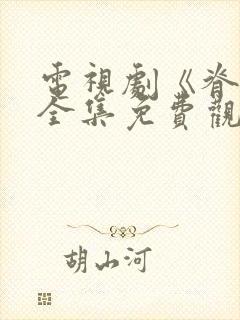 電視劇《脊
全集免費觀
胡山河